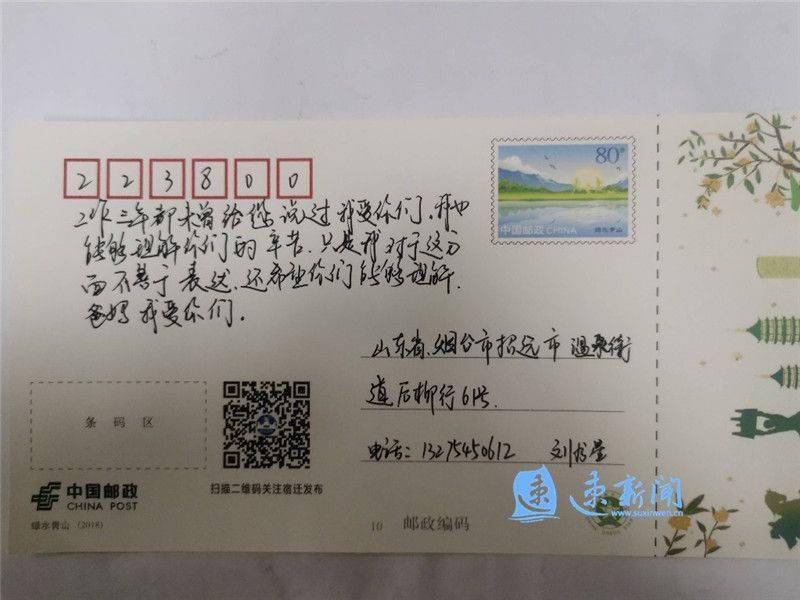 2 2 3 8 0 0
80分
中国邮政 CHINA 绿水青山
工作三年都未曾给您说过我爱你们,我也
能够理解你们的辛苦.只是我对于这方
面不善于表达.还希望你们能够理解.
爸妈我爱你们.
山东省.烟台市招远市 温泉街
道后柳行61号.
电话:13275450612
条码区
扫描二维码关注宿迁发布
中国邮政
CHINA POST
绿水青山 (2018)
10 邮政编码
速 速新闻
www.suxinwen.cn